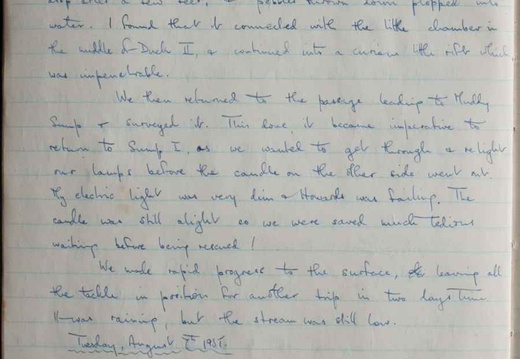 drop over a few feet, & pebbles thrown down plopped into
water. I found that it connected with the little chamber in
the middle of Duck II, & continued into a curious little rift which
was impenetrable.
We then returned to the passage leading to Muddy
Sump & surveyed it. This done, it became imperative to
return to Sump I, as we wanted to get through & relight
our lamps before the candle on the other side went out.
My electric light was very dim & Howards was failing. The
candle was still alight so we were saved much tedious
waiting before being rescued!
We made rapid progress to the surface, leaving all
the tackle in position for another trip in two days time.
It was raining, but the stream was still low.
Tuesday, August